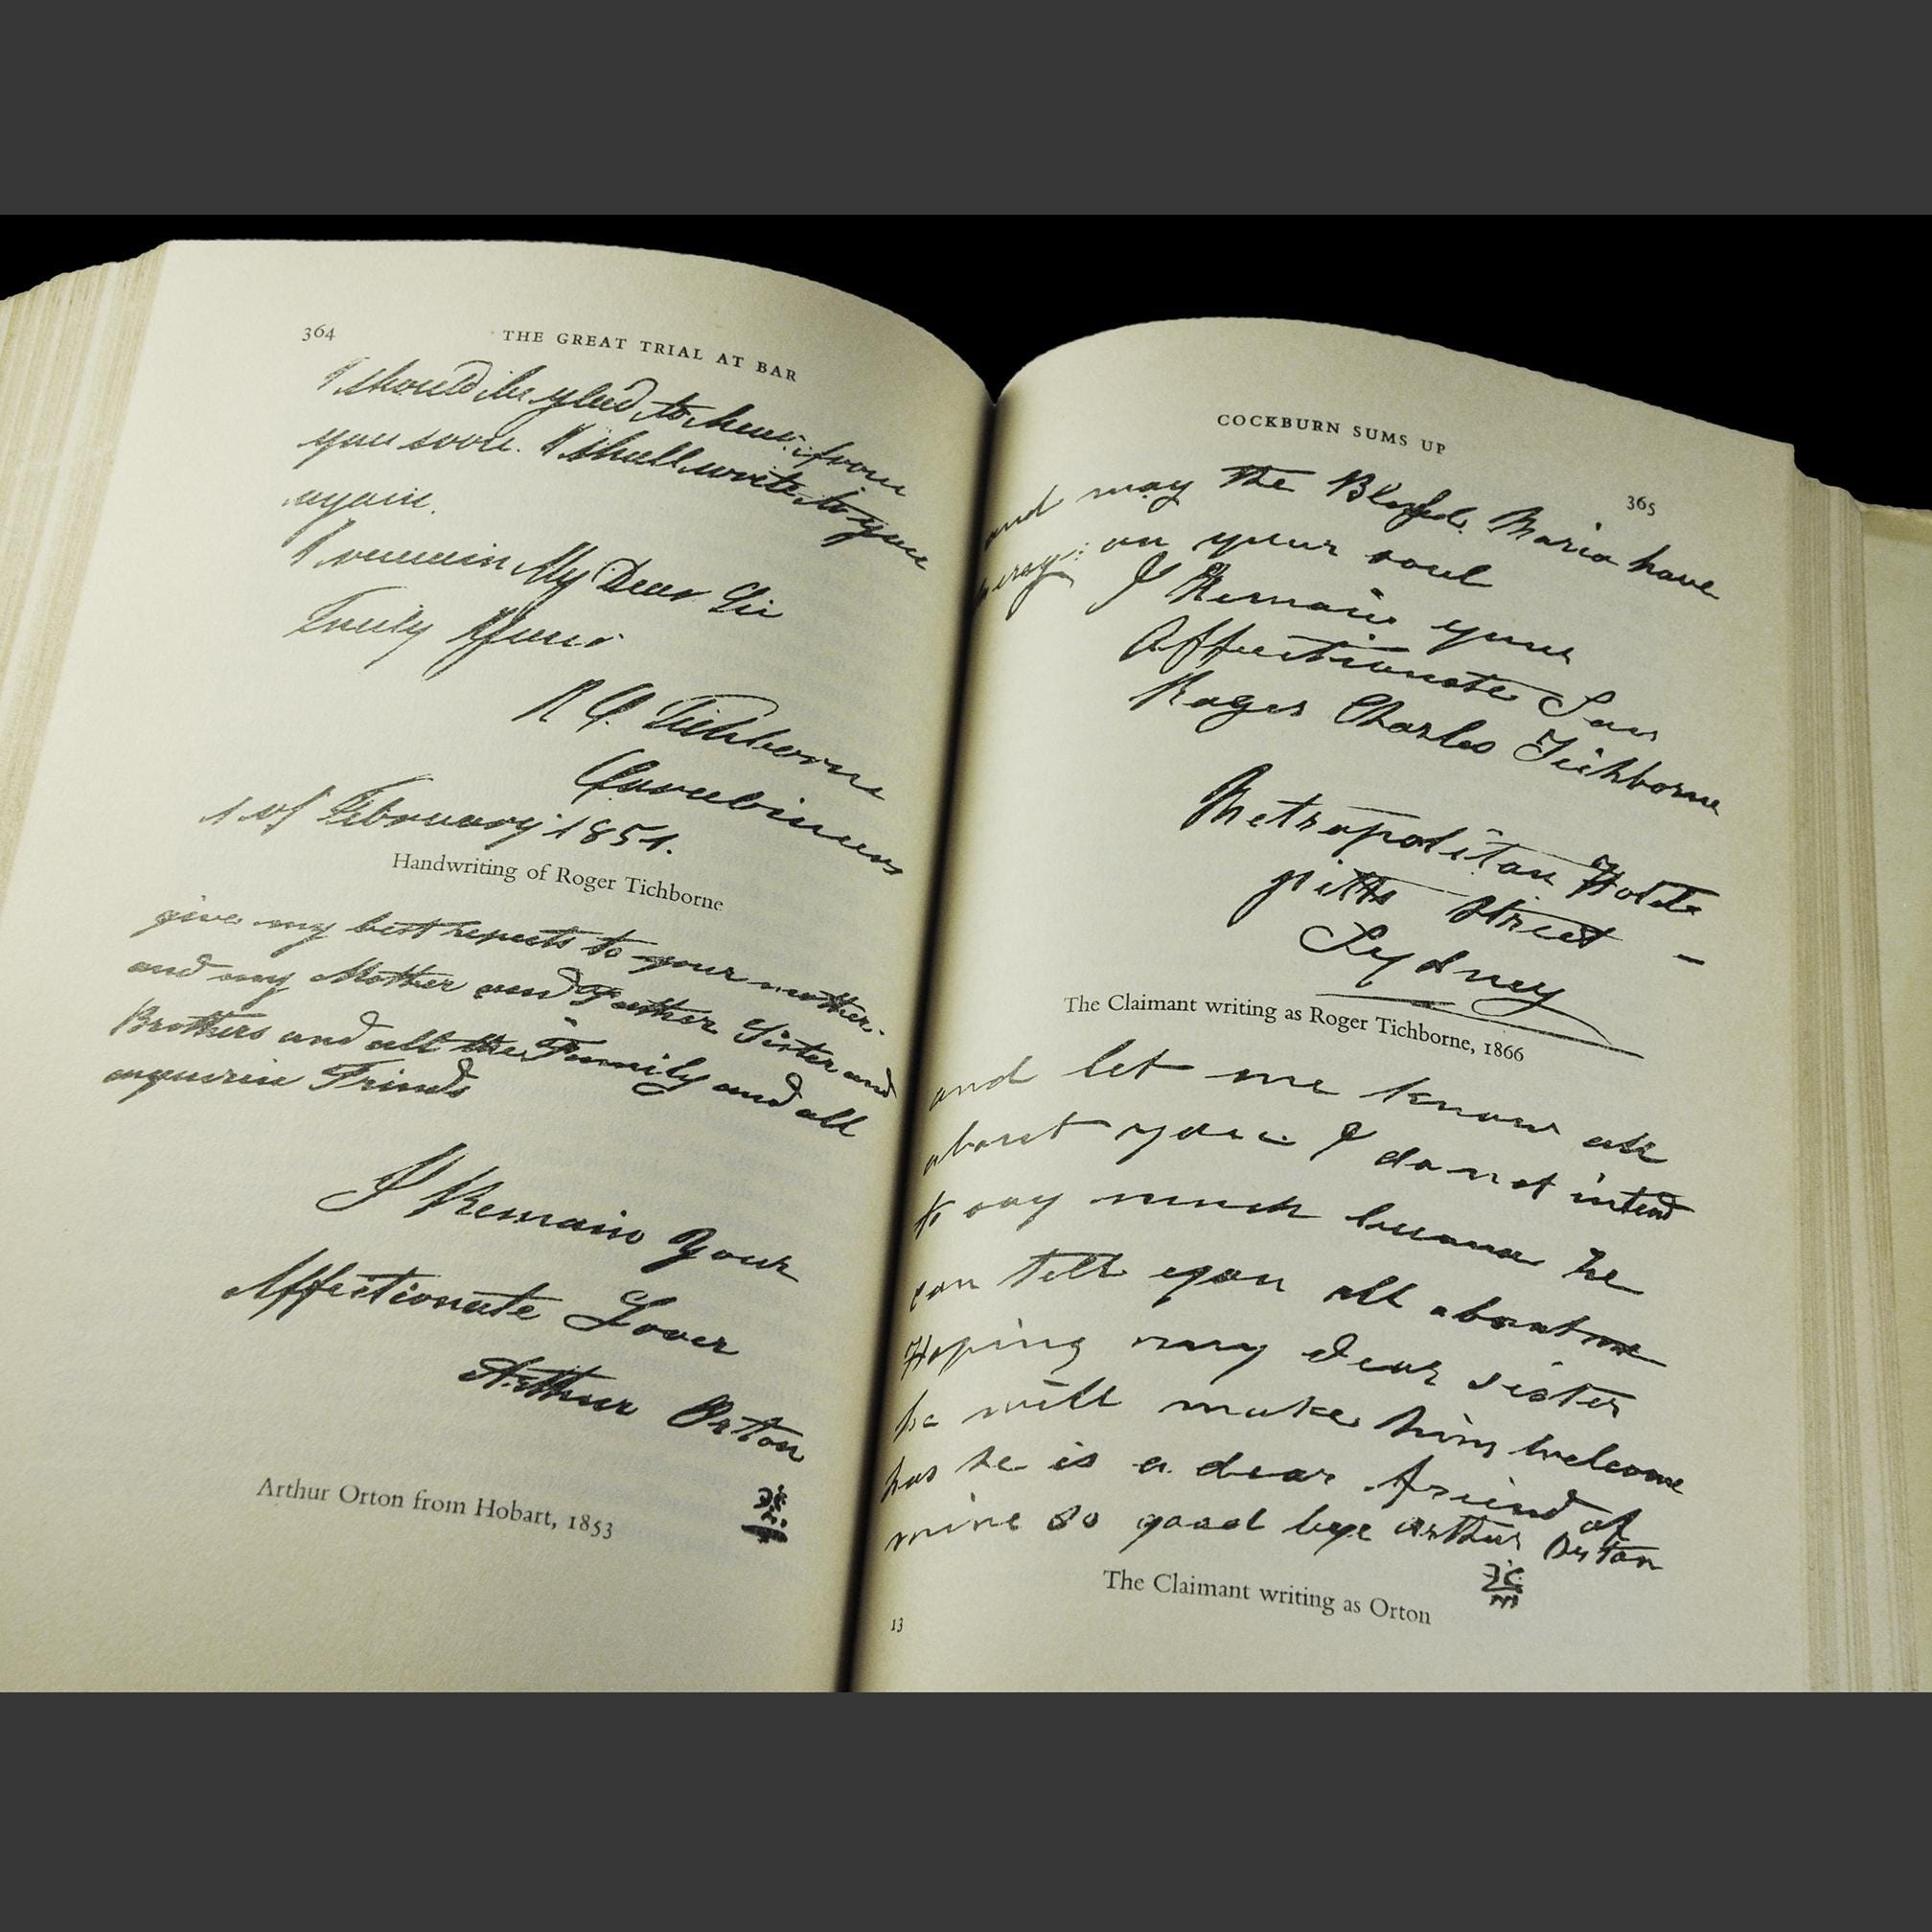 364
THE GREAT TRIAL AT BAR
I should be glad to hear from
you soon. I shall write to you
again.
I remain My Dear Sir
Truly Yours
R C Tichborne
Carabineers
1 of February 1851.
Handwriting of Roger Tichborne
give my best respects to your mother.
and my Mother and Father Sister and
Brothers and all the Family and all
enquirin Frinds
I Remain Your
Affectionate Lover
Arthur Orton
Arthur Orton from Hobart, 1853
COCKBURN SUMS UP
365
and may the Blessed Maria have
on your soul
I Remain your
Affectionate Son
Roger Charles Tichborne
Metropolitan Hotel
pitts Street –
Sydney
The Claimant writing as Roger Tichborne, 1866
and let me know all
about you I do not intend
to say much because he
can tell you all about me
Hoping my dear sister
he will make him welcome
has he is a dear friend of
mine so good bye Arthur Orton
The Claimant writing as Orton
13